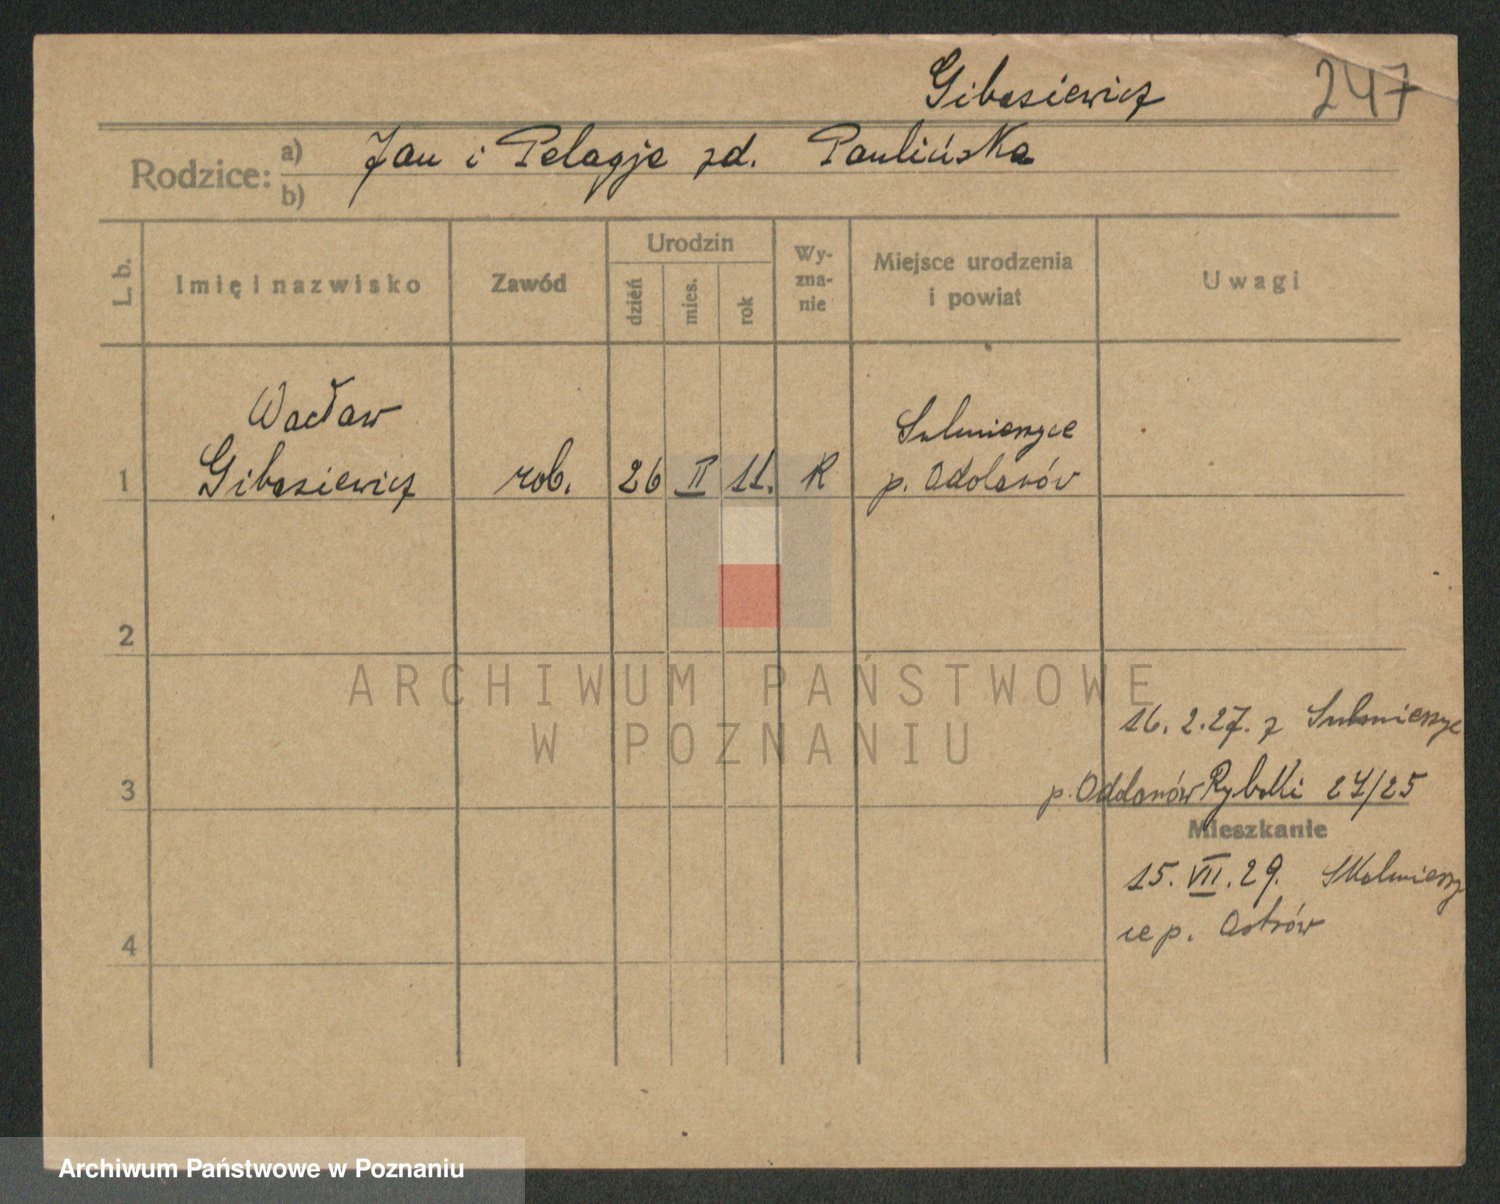 Gibasiewicz 247
Rodzice: a) Jan i Pelagja zd. Paulińska
b)
L. b. Imię i nazwisko Zawód Urodzin dzień mies. rok Wyzna-nie Miejsce urodzenia i powiat Uwagi
Wacław Sulmierzyce
1 Gibasiewicz rob. 26 II 11. R p. Odolanów
2
ARCHIWUM PAŃSTWOWE
W POZNANIU
16. 2. 27. z Sulmierzyc
3 p. Odolanów Rybaki 24/25
Mieszkanie
15. VII. 29. Skalmierzy
4 ce p. Ostrów
Archiwum Państwowe w Poznaniu